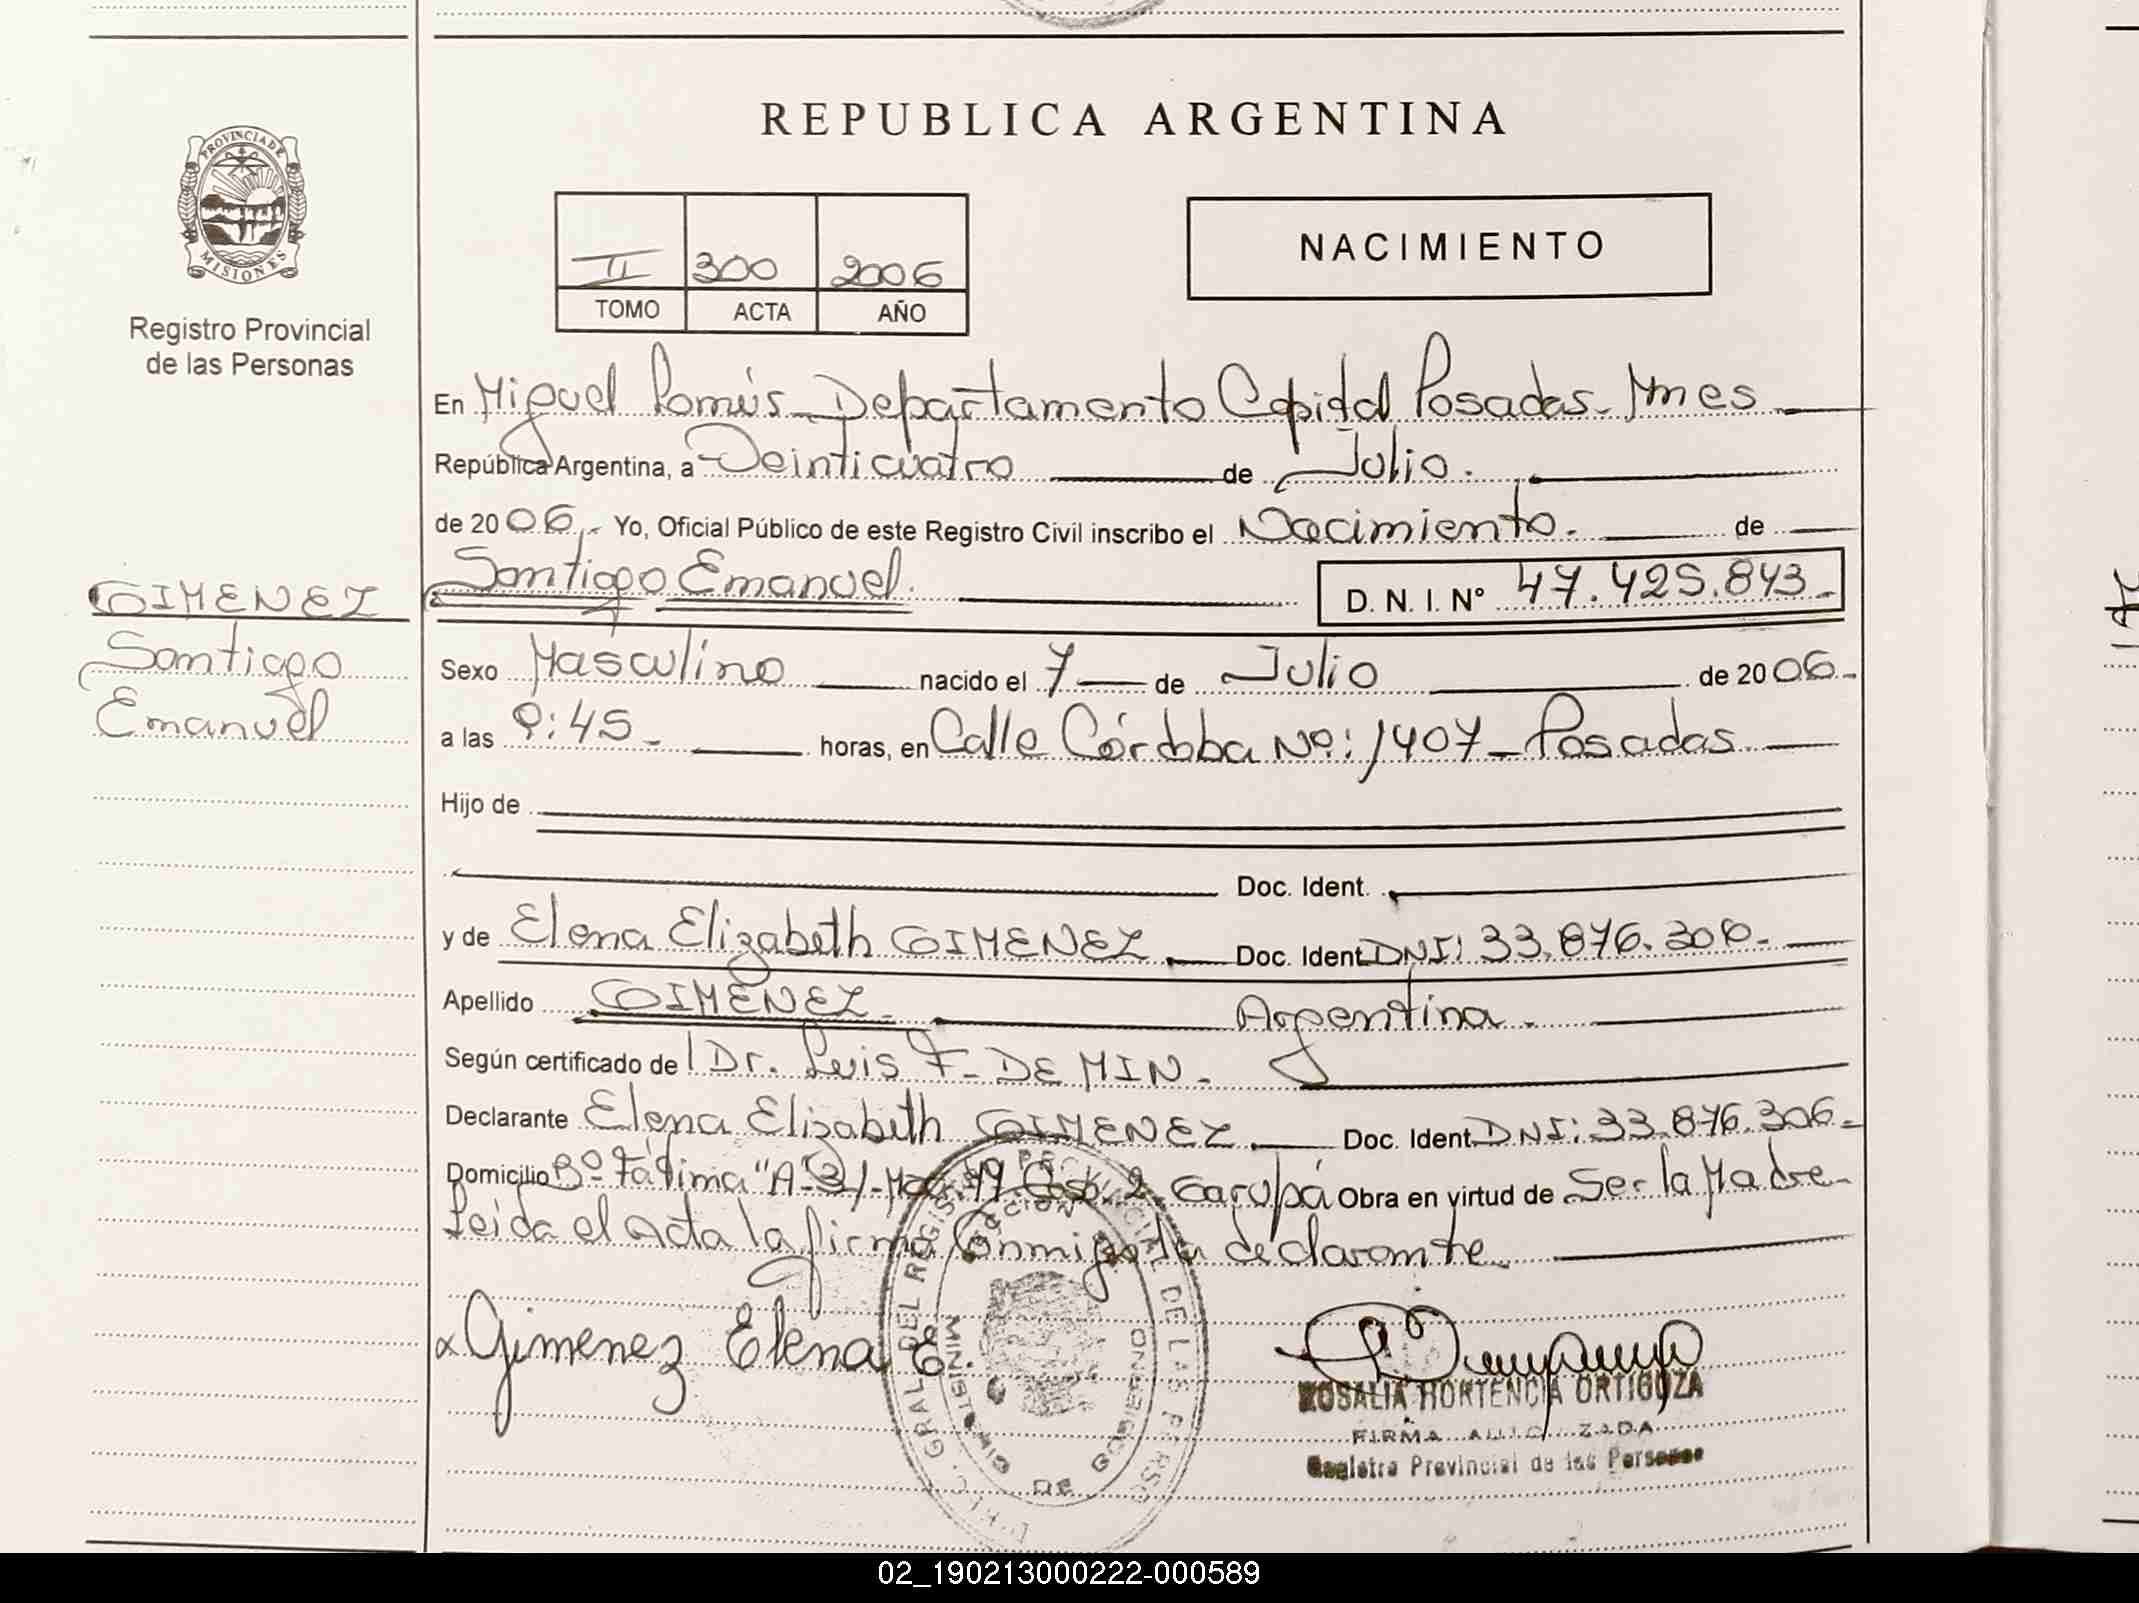 REPUBLICA ARGENTINA
PROVINCIA DE MISIONES
Registro Provincial
de las Personas
II 300 2006
TOMO ACTA AÑO
NACIMIENTO
En Miguel Lanús - Departamento Capital Posadas - Mnes
República Argentina, a Veinticuatro de Julio.
de 2006.- Yo, Oficial Público de este Registro Civil inscribo el Nacimiento. de
Santiago Emanuel. D. N. I. Nº 47.425.843-
GIMENEZ
Santiago
Emanuel
Sexo Masculino nacido el 7 de Julio de 2006.-
a las 9:45 - horas, en Calle Córdoba Nº: 1407 - Posadas
Hijo de
Doc. Ident.
y de Elena Elizabeth GIMENEZ Doc. Ident DNI: 33.876.306-
Apellido GIMENEZ - Argentina.
Según certificado de Dr. Luis F. DE MIN -
Declarante Elena Elizabeth GIMENEZ Doc. Ident DNI: 33.876.306-
Domicilio Bº Fátima "A-3) 2. Garupá Obra en virtud de Ser la Madre-
Leida el Acta la firma Conmigo la declarante
Gimenez Elena E
ROSALIA HORTENCIA ORTIGOZA
FIRMA AUTORIZADA
Registro Provincial de las Personas
02_190213000222-000589